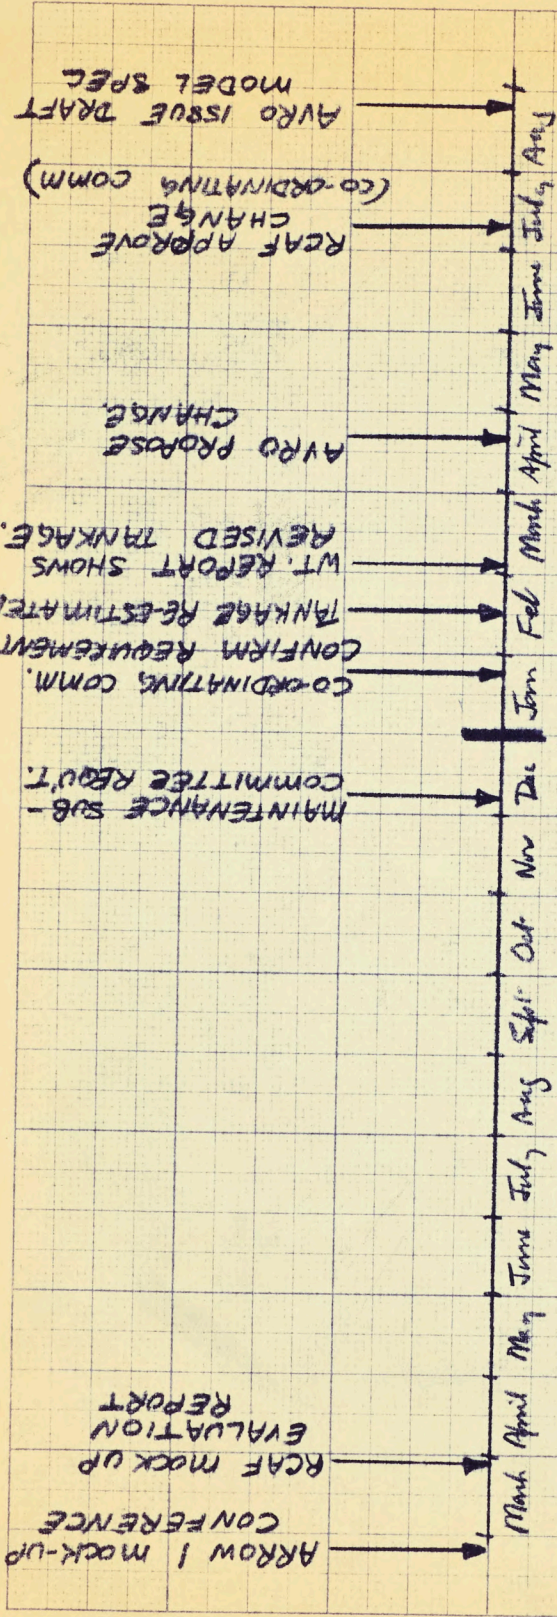 ARROW 1 MOCK-UP
CONFERENCE
RCAF MOCK UP
EVALUATION
REPORT
MAINTENANCE SUB-
COMMITTEE REQU'T.
CO-ORDINATING COMM.
CONFIRM REQUIREMENT
TANKAGE RE-ESTIMATE
WT. REPORT SHOWS
REVISED TANKAGE.
AVRO PROPOSE
CHANGE.
RCAF APPROVE
CHANGE
(CO-ORDINATING COMM)
AVRO ISSUE DRAFT
MODEL SPEC
March April May June July Aug Sept Oct Nov Dec Jan Feb March April May June July Aug